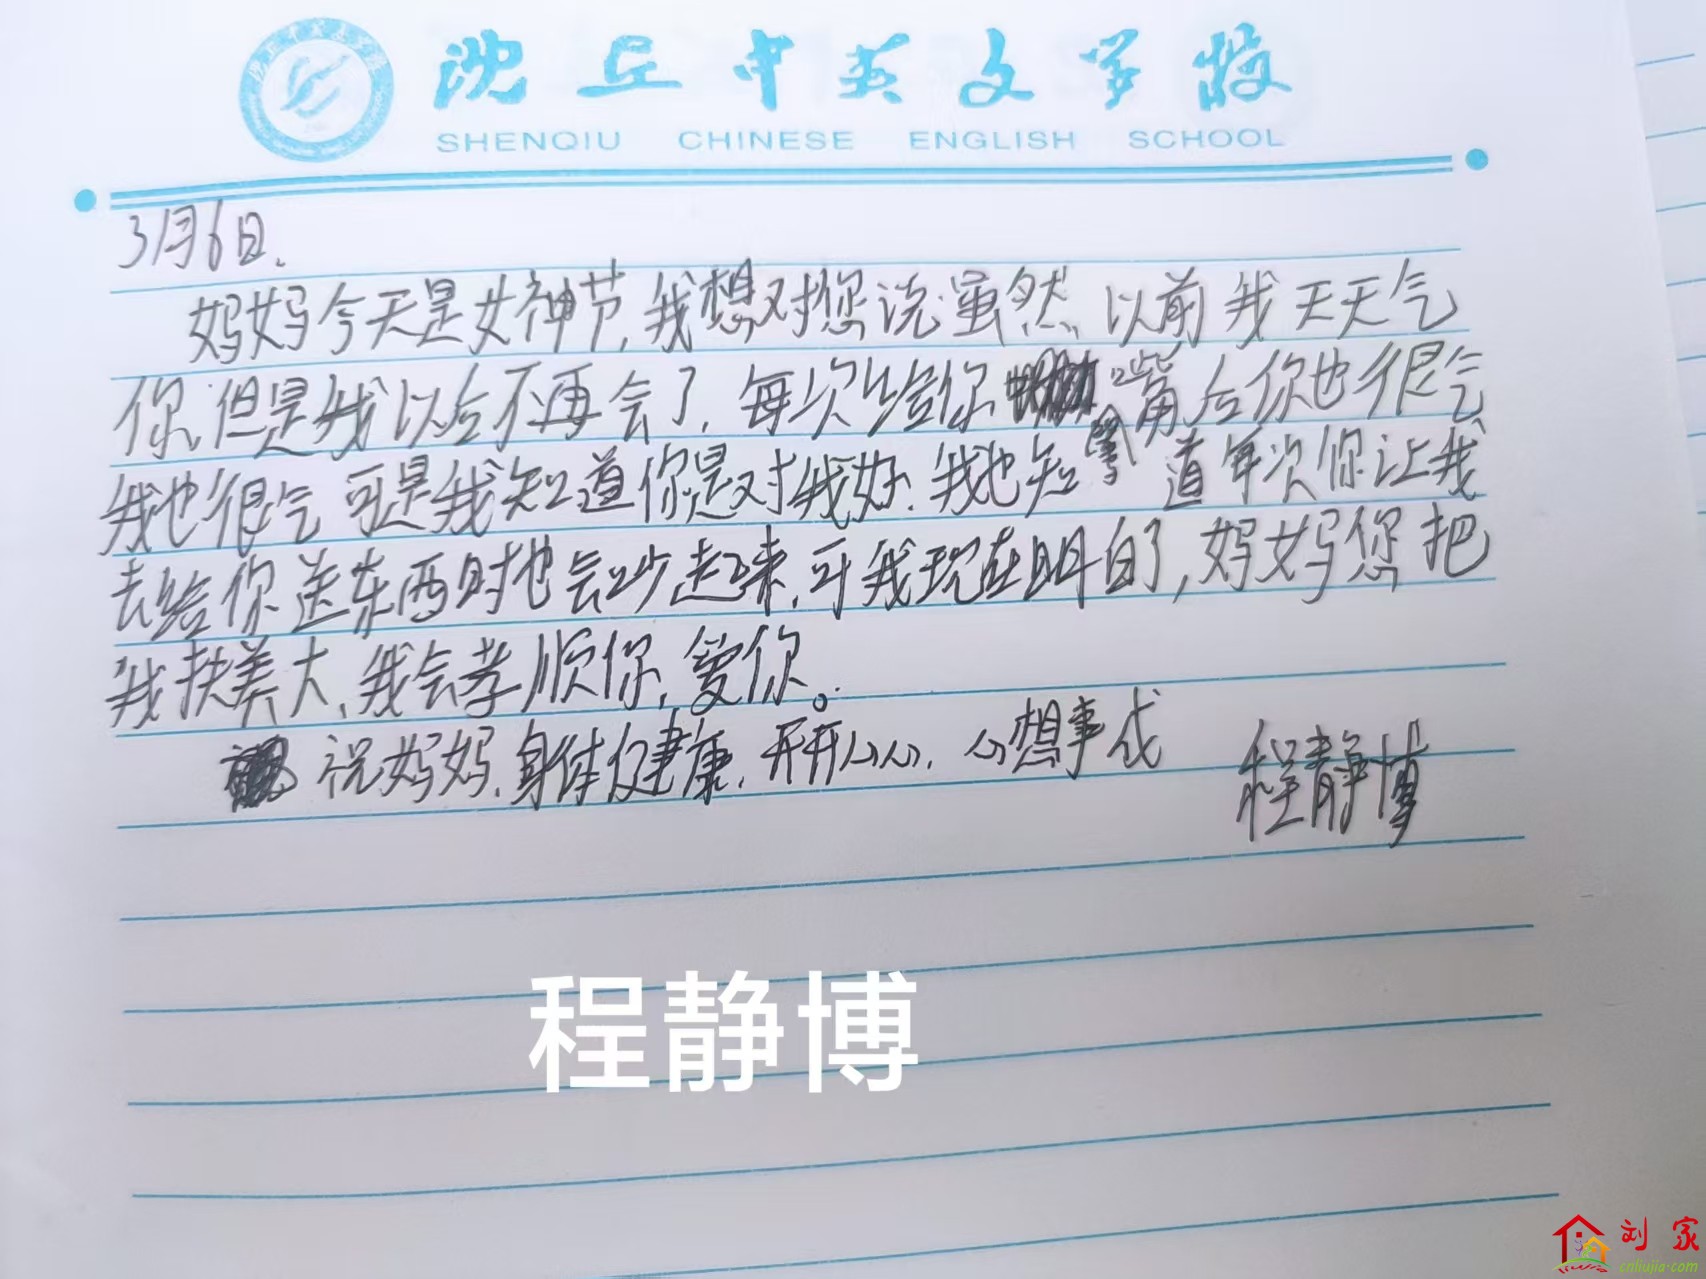 沈丘中英文学校
SHENQIU CHINESE ENGLISH SCHOOL
3月6日.
妈妈今天是女神节,我想对您说虽然以前我天天气
你,但是我以后不再会了,每次给你嘴后你也很气
我也很气可是我知道你是对我好.我也知道每次你让我
去给你送东西时也会吵起来.可我现在明白了,妈妈您把
我扶养大,我会孝顺你,爱你。
祝妈妈,身体健康,开开心心,心想事成
程静博
程静博
刘家
cnliujia.com